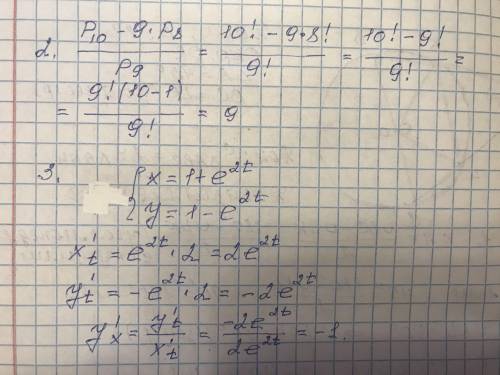 2. (P₁₀ - 9·P₈)/P₉ = (10! - 9·8!)/9! = (10! - 9!)/9! =
= 9!(10-1)/9! = 9
3. { x = 1 + e^{2t}
y = 1 - e^{2t}
x'ₜ = e^{2t} · 2 = 2e^{2t}
y'ₜ = -e^{2t} · 2 = -2e^{2t}
y'ₓ = y'ₜ/x'ₜ = -2e^{2t}/2e^{2t} = -1.